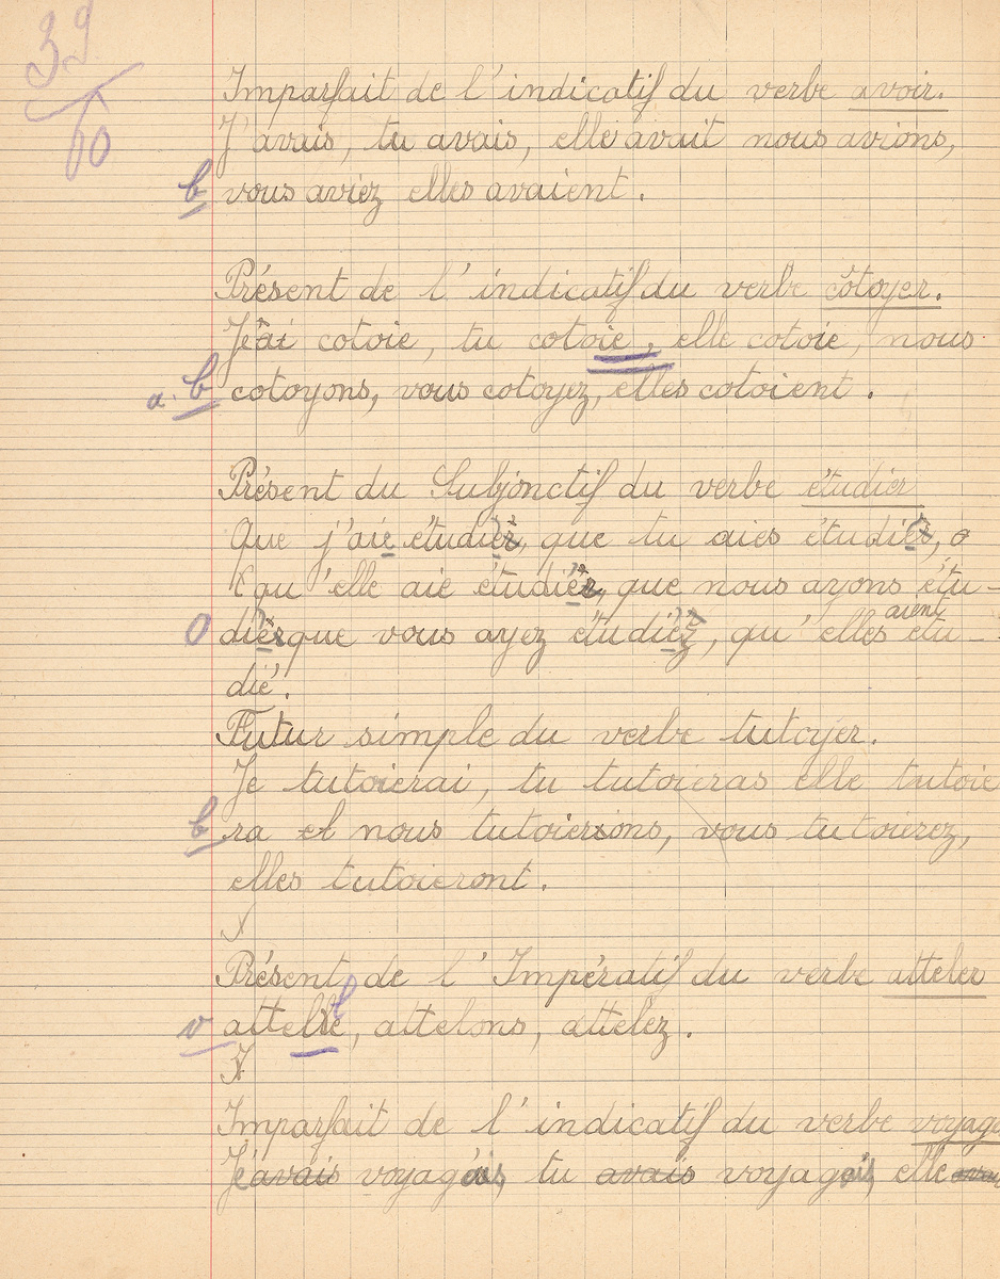 39
60
Imparfait de l'indicatif du verbe avoir.
J'avais, tu avais, elle avait nous avions,
b vous aviez elles avaient.
Présent de l'indicatif du verbe côtoyer.
Je cotoie, tu cotoie, elle cotoie, nous
a. b cotoyons, vous cotoyez, elles cotoient.
Présent du Subjonctif du verbe étudier
Que j'aie étudié, que tu aies étudié,
qu'elle aie étudié, que nous ayons étu-
0 dié que vous ayez étudié, qu'elles aient étu-
dié.
Futur simple du verbe tutoyer.
Je tutoierai, tu tutoieras elle tutoie
b ra et nous tutoierons, vous tutoierez,
elles tutoieront.
Présent de l'Impératif du verbe atteler
v attelle, attelons, attelez.
Imparfait de l'indicatif du verbe voyag
Je avais voyagais, tu avais voyagais, elle